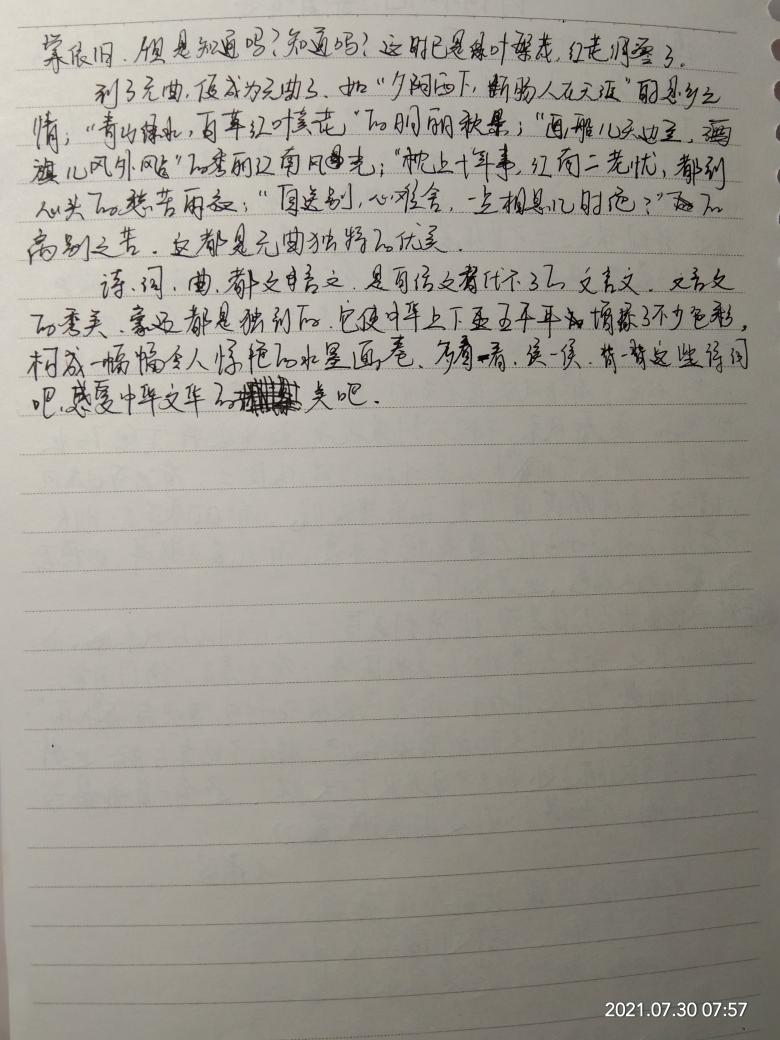 棠依旧。但是知道吗？知道吗？这时已是绿叶繁茂，红花凋零了。
到了元曲，便成为元曲了。如“夕阳西下，断肠人在天涯”的思乡之
情；“青山绿水，百草红叶黄花”的明丽秋景；“画船儿天边至，酒
旗儿风外飐”的秀丽江南风光；“枕上十年事，江南二老忧，都到
心头”的愁苦雨夜；“自送别，心难舍，一点相思几时绝？”的
离别之苦。这都是元曲独特的优美。
诗、词、曲，都文言文，是白话文替代不了的文言文。文言文
的秀美、豪迈都是独到的，它使中华上下五千年增添了不少色彩，
构成一幅幅令人惊艳的水墨画卷。多看一看，读一读，背一背这些诗词
吧，感受中华文华的美吧。
2021.07.30 07:57